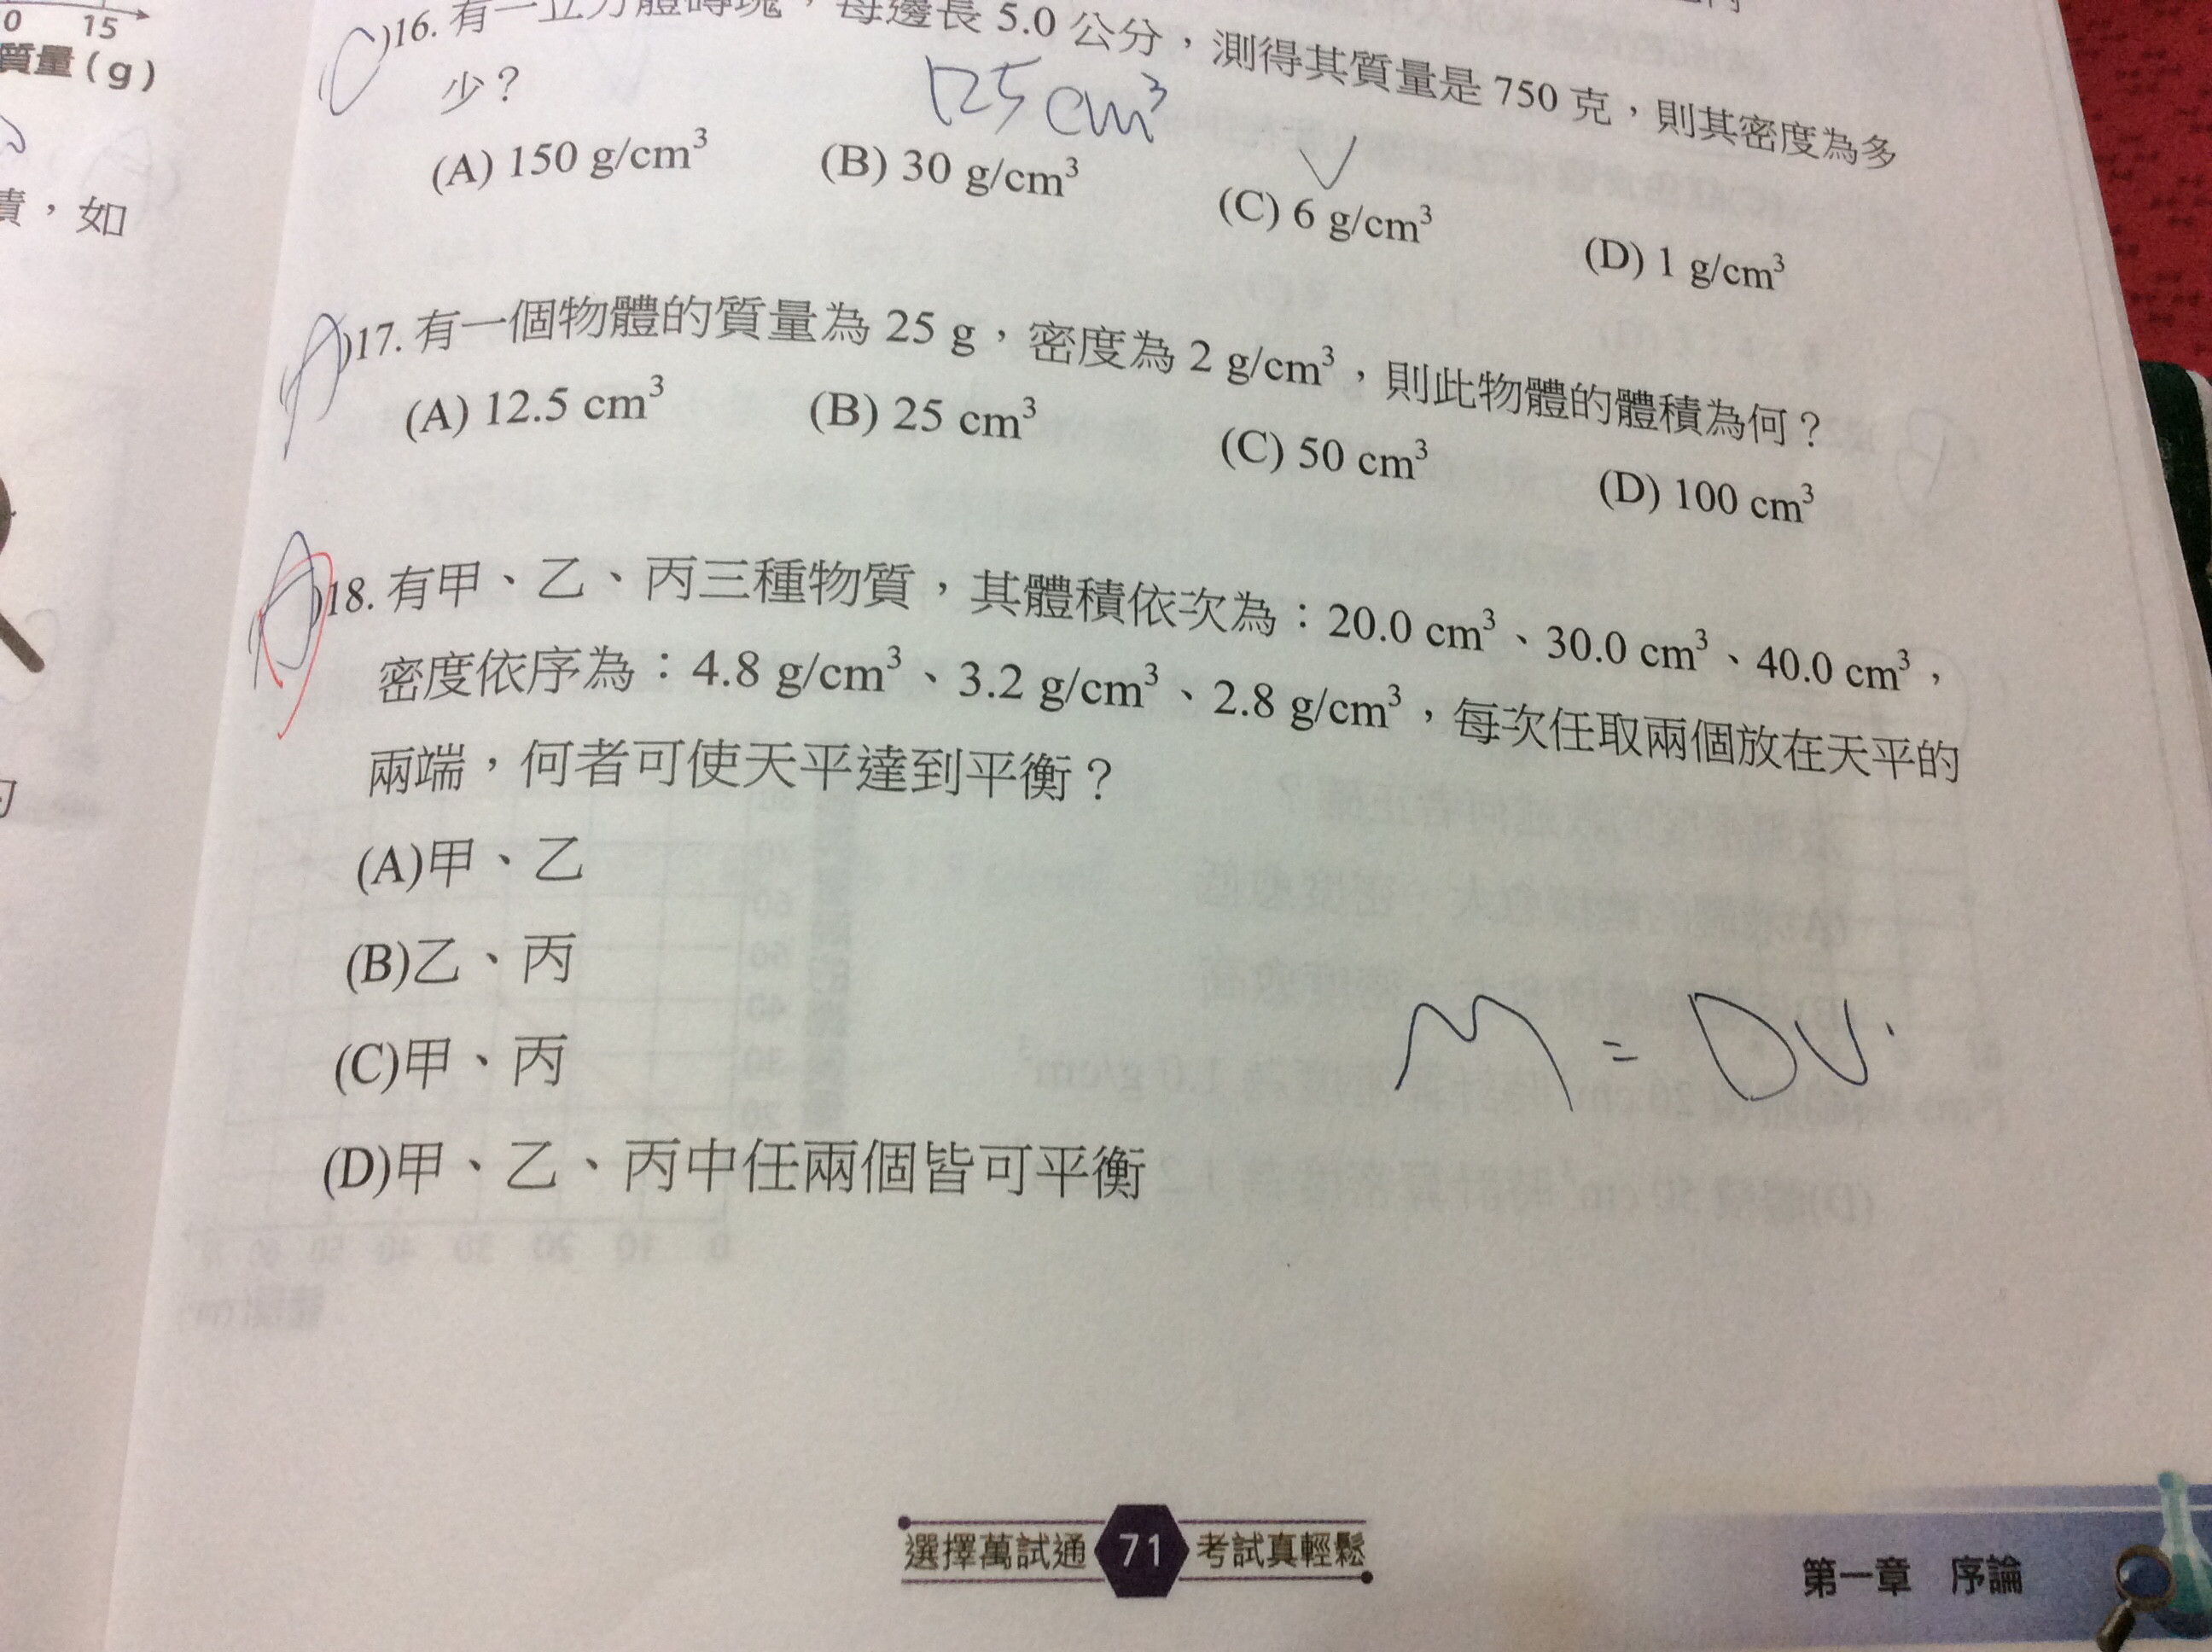 0 15
質量(g)
積，如
)16. 有一立方體磚塊，每邊長 5.0 公分，測得其質量是 750 克，則其密度為多
少？
125 cm³
(A) 150 g/cm³ (B) 30 g/cm³ (C) 6 g/cm³ (D) 1 g/cm³
A)17. 有一個物體的質量為 25 g，密度為 2 g/cm³，則此物體的體積為何？
(A) 12.5 cm³ (B) 25 cm³ (C) 50 cm³ (D) 100 cm³
A)18. 有甲、乙、丙三種物質，其體積依次為：20.0 cm³、30.0 cm³、40.0 cm³，
密度依序為：4.8 g/cm³、3.2 g/cm³、2.8 g/cm³，每次任取兩個放在天平的
兩端，何者可使天平達到平衡？
(A)甲、乙
(B)乙、丙
(C)甲、丙
M = DV
(D)甲、乙、丙中任兩個皆可平衡
選擇萬試通 71 考試真輕鬆
第一章 序論